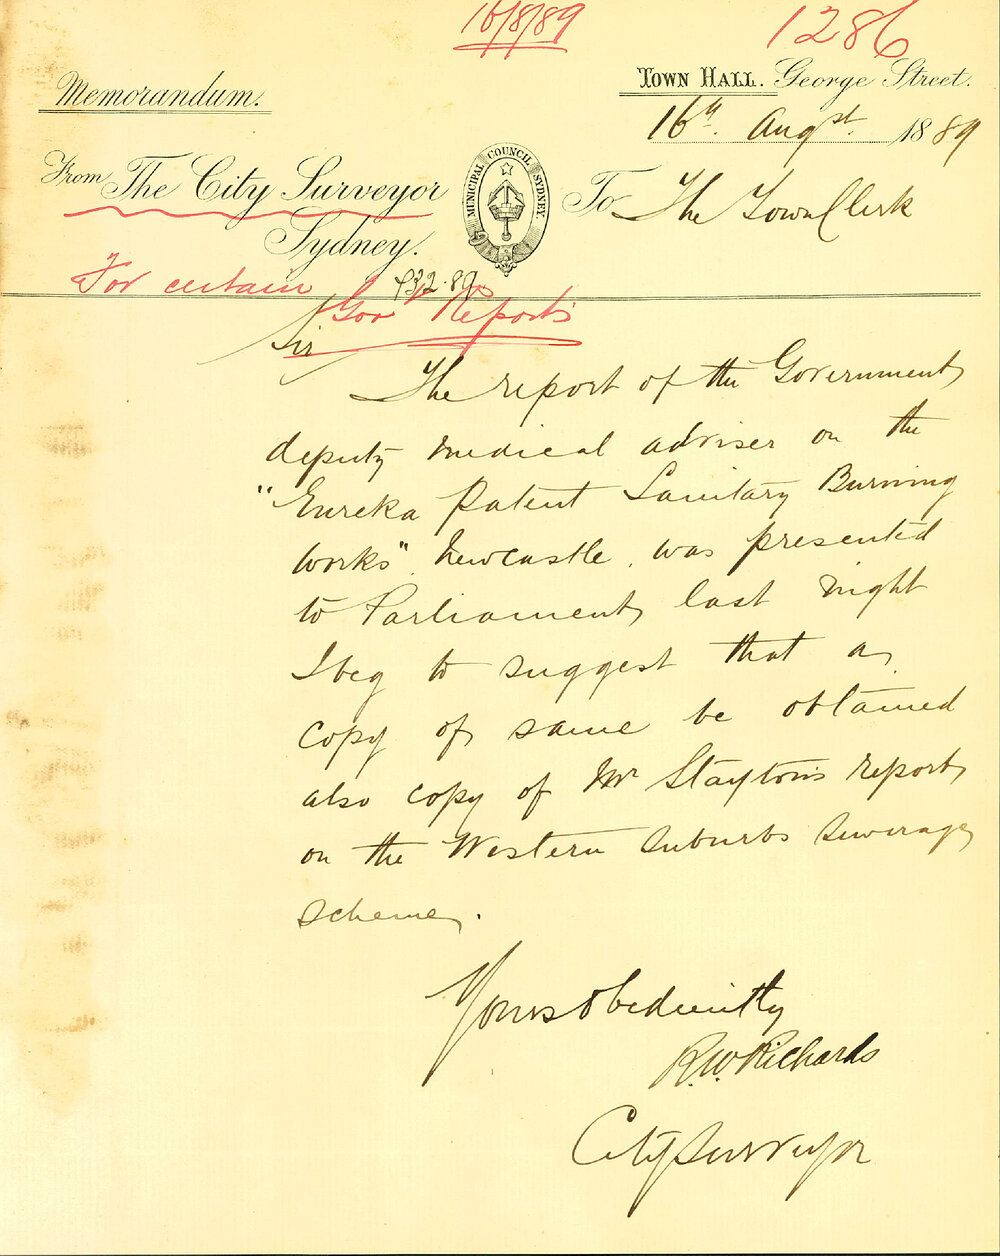 16/8/89
1286
Memorandum.
Town Hall. George Street.
16th. Augst. 1889
From The City Surveyor
Sydney.
MUNICIPAL COUNCIL SYDNEY.
To The Town Clerk
For certain
Govt Reports
Sir
The report of the Government
deputy medical adviser on the
"Eureka Patent Sanitary Burning
works" Newcastle, was presented
to Parliament last night
I beg to suggest that a
copy of same be obtained
also copy of Mr Stayton's report
on the Western Suburbs Sewerage
scheme.
Yours obediently
R.W. Richards
City Surveyor